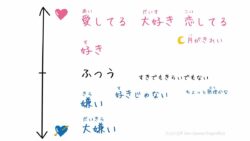 愛してる 大好き 恋してる
あい だいす こい
好き
す
月がきれい
ふつう すきでもきらいでもない
嫌い 好きじゃない
きら す
大嫌い
だいきら